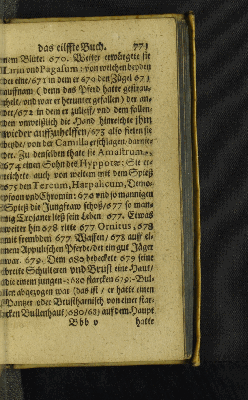 das eilffte Buch. 773
nem Blute. 670. Weiter erwürgete sie
Lirin und Pagasum: von welchen beyden
der eine/ 671 in dem er 670 den Zügel 671
auffnam (denn das Pferd hatte
und war er herunter gefallen) der an-
der/ 672 in dem er zulieff/ und dem fallen-
den unweißlich die Hand hinreichte ihm
wieder auffzuhelffen/ 673 also fielen sie
beyde/ von der Camilla erschlagen, darnie-
der. Zu denselben thate sie Amastrum,
674 einen Sohn des Hyppotæ: Sie er-
reichete auch von weitem mit dem Spieß
675 den Tereum, Harpalicum, Demo-
phoon und Chromin: 676 und so mannigen
Spieß die Jungfraw schoß/ 677 so man-
nig Trojaner ließ sein Leben. 677. Etwas
weiter hin 678 ritte 677 Ornitus, 678
mit frembden 677 Waffen/ 678 auff ei-
nem Apulischen Pferde/ der ein gut Jäger
war. 679. Dem 680 bedeckete 679 seine
breite Schulteren und Brust eine Haut/
die einem jungen 680 starcken 679 Bul-
len abgezogen war (das ist/ er hatte einen
Pantzer oder Brustharnisch von einer star-
cken Bullenhaut) 680/681 auff dem Haupt
Bbb v hatte